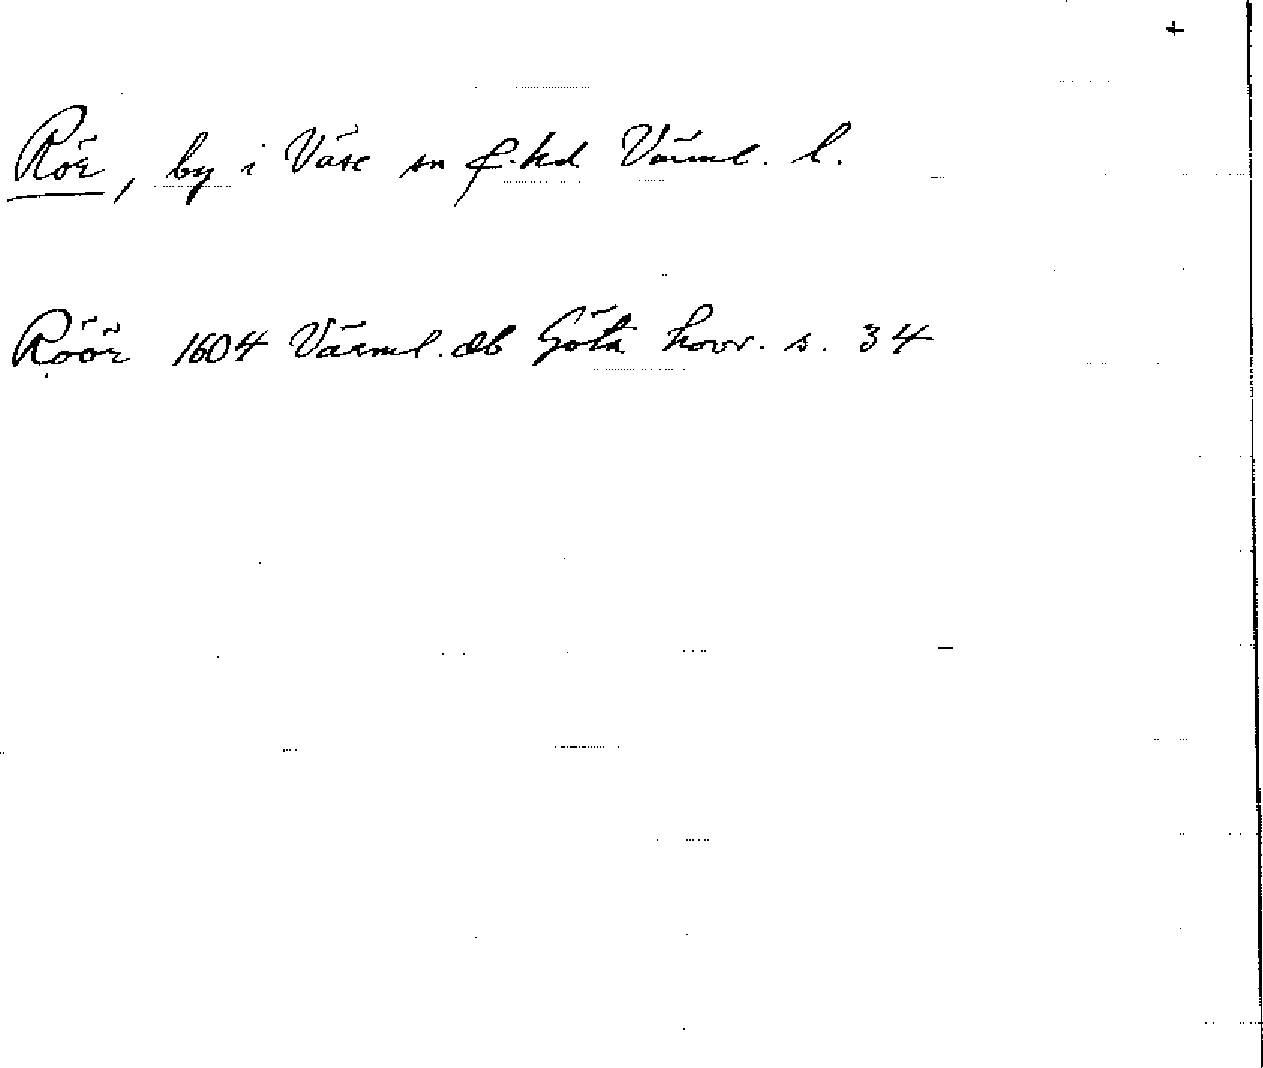 +
Rör, by i Väse sn f. hd Värml. l.
Röör 1604 Värml. db Göta hovr. s. 34